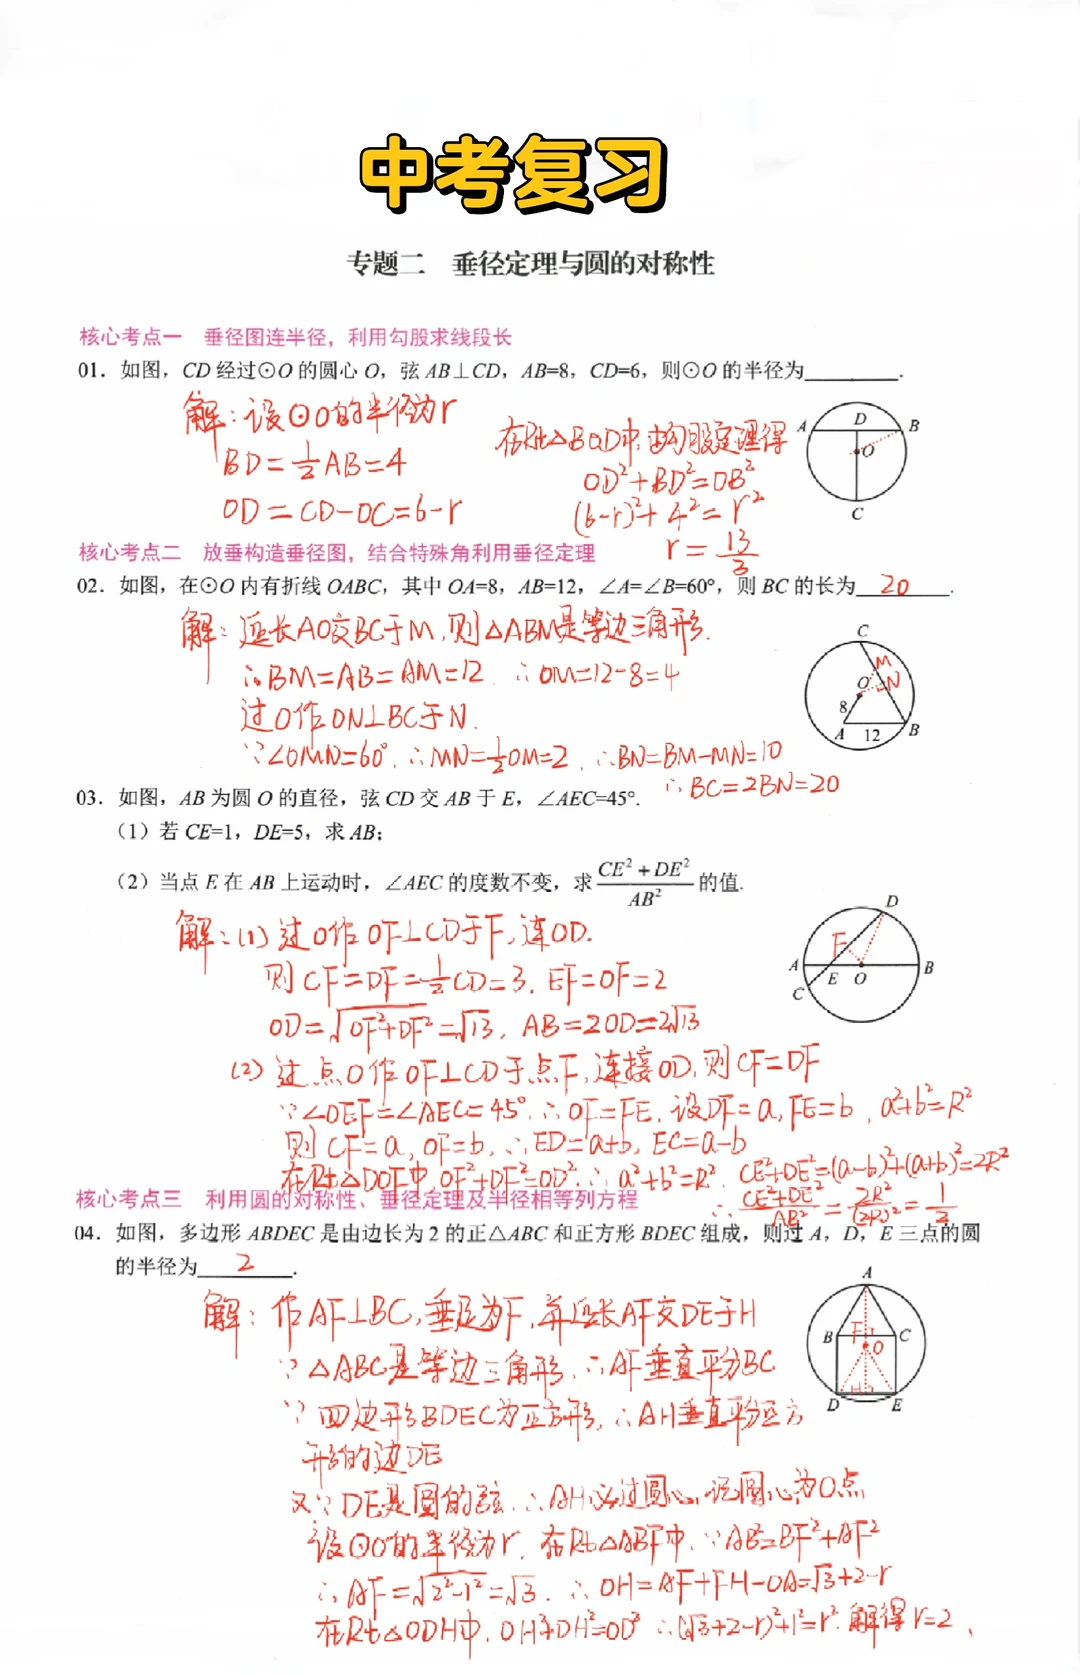 中考复习
专题二 垂径定理与圆的对称性
核心考点一 垂径图连半径，利用勾股求线段长
01. 如图，CD 经过⊙O 的圆心 O，弦 AB⊥CD，AB=8，CD=6，则⊙O 的半径为________.
解：设⊙O的半径为r
BD=½AB=4
OD=CD-OC=6-r
在Rt△BOD中，由勾股定理得
OD²+BD²=OB²
(6-r)²+4²=r²
r=13/3
A D B
O
C
核心考点二 放垂构造垂径图，结合特殊角利用垂径定理
02. 如图，在⊙O 内有折线 OABC，其中 OA=8，AB=12，∠A=∠B=60°，则 BC 的长为 20 .
解：延长AO交BC于M，则△ABM是等边三角形.
∴BM=AB=AM=12 ∴OM=12-8=4
过O作ON⊥BC于N.
∵∠OMN=60°.∴MN=½OM=2.∴BN=BM-MN=10
∴BC=2BN=20
C
M
O N
8
A 12 B
03. 如图，AB 为圆 O 的直径，弦 CD 交 AB 于 E，∠AEC=45°.
（1）若 CE=1，DE=5，求 AB；
（2）当点 E 在 AB 上运动时，∠AEC 的度数不变，求 (CE²+DE²)/AB² 的值.
解：(1) 过O作OF⊥CD于F，连OD.
则CF=DF=½CD=3. EF=OF=2
OD=√(OF²+DF²)=√13，AB=2OD=2√13
(2) 过点O作OF⊥CD于点F，连接OD，则CF=DF
∵∠OEF=∠AEC=45°.∴OF=FE.设DF=a，FE=b，a²+b²=R²
则CF=a，OF=b，∴ED=a+b，EC=a-b
在Rt△DOF中，OF²+DF²=OD².∴a²+b²=R². CE²+DE²=(a-b)²+(a+b)²=2R²
∴(CE²+DE²)/AB²=2R²/(2R)²=1/2
D
F
A E O B
C
核心考点三 利用圆的对称性、垂径定理及半径相等列方程
04. 如图，多边形 ABDEC 是由边长为 2 的正△ABC 和正方形 BDEC 组成，则过 A，D，E 三点的圆
的半径为 2 .
解：作AF⊥BC，垂足为F，并延长AF交DE于H
∵△ABC是等边三角形，∴AF垂直平分BC
∵四边形BDEC为正方形，∴AH垂直平分正方
形的边DE
又∵DE是圆的弦，∴AH必过圆心，记圆心为O点
设⊙O的半径为r，在Rt△ABF中，∵AB²=BF²+AF²
∴AF=√(2²-1²)=√3.∴OH=AF+FH-OA=√3+2-r
在Rt△ODH中，OH²+DH²=OD² ∴(√3+2-r)²+1²=r².解得r=2
A
B F C
O
H
D E